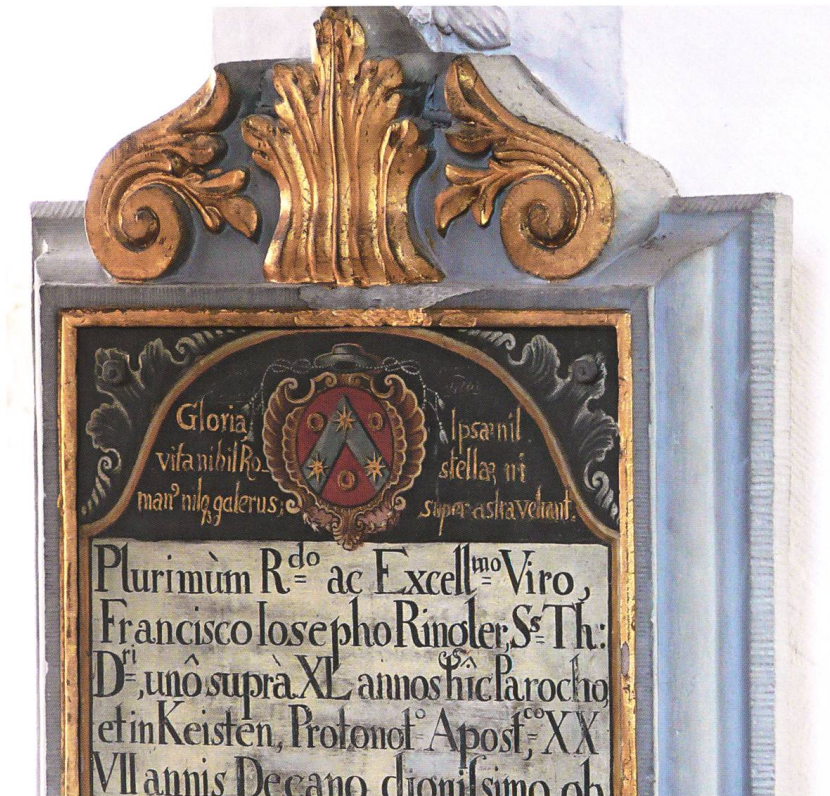 Gloria
vita nihil Ro=
man⁹ nilq₃ galerus;
Ipsæ nil
stellæ, ni
super astra vehant.
Plurimùm R.do ac Excell.mo Viro,
Francisco Iosepho Ringler, Ss. Th:
D.ri, unô suprà XL annos hîc Parocho,
et in Keisten, Protonot.o Apost.co, XX
VII annis Decano dignissimo, ob